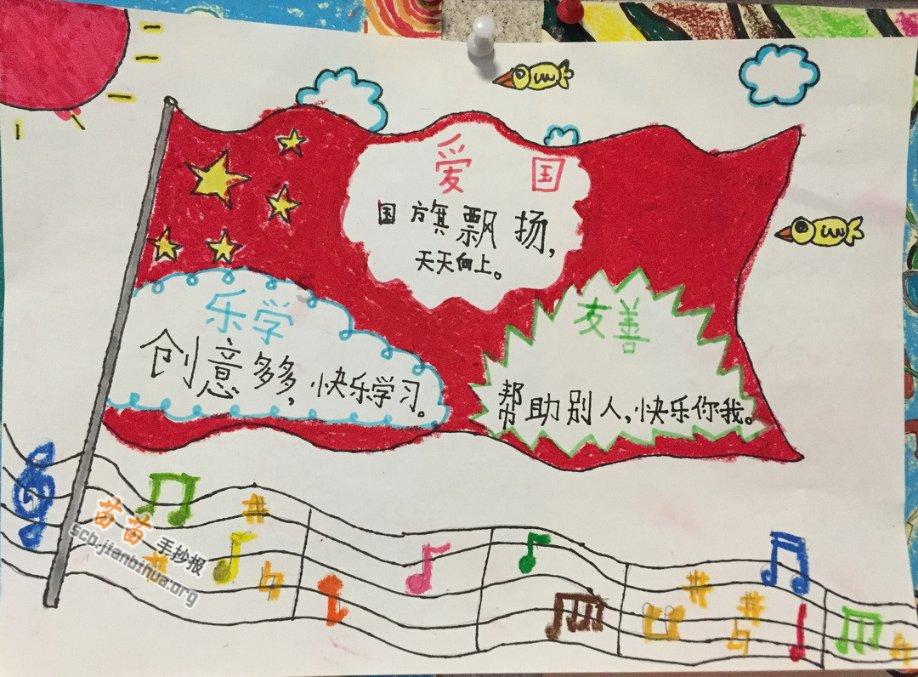 爱国
国旗飘扬,
天天向上。
乐学
创意多多,快乐学习。
友善
帮助别人,快乐你我。
苗苗手抄报
scb.jianbihua.org